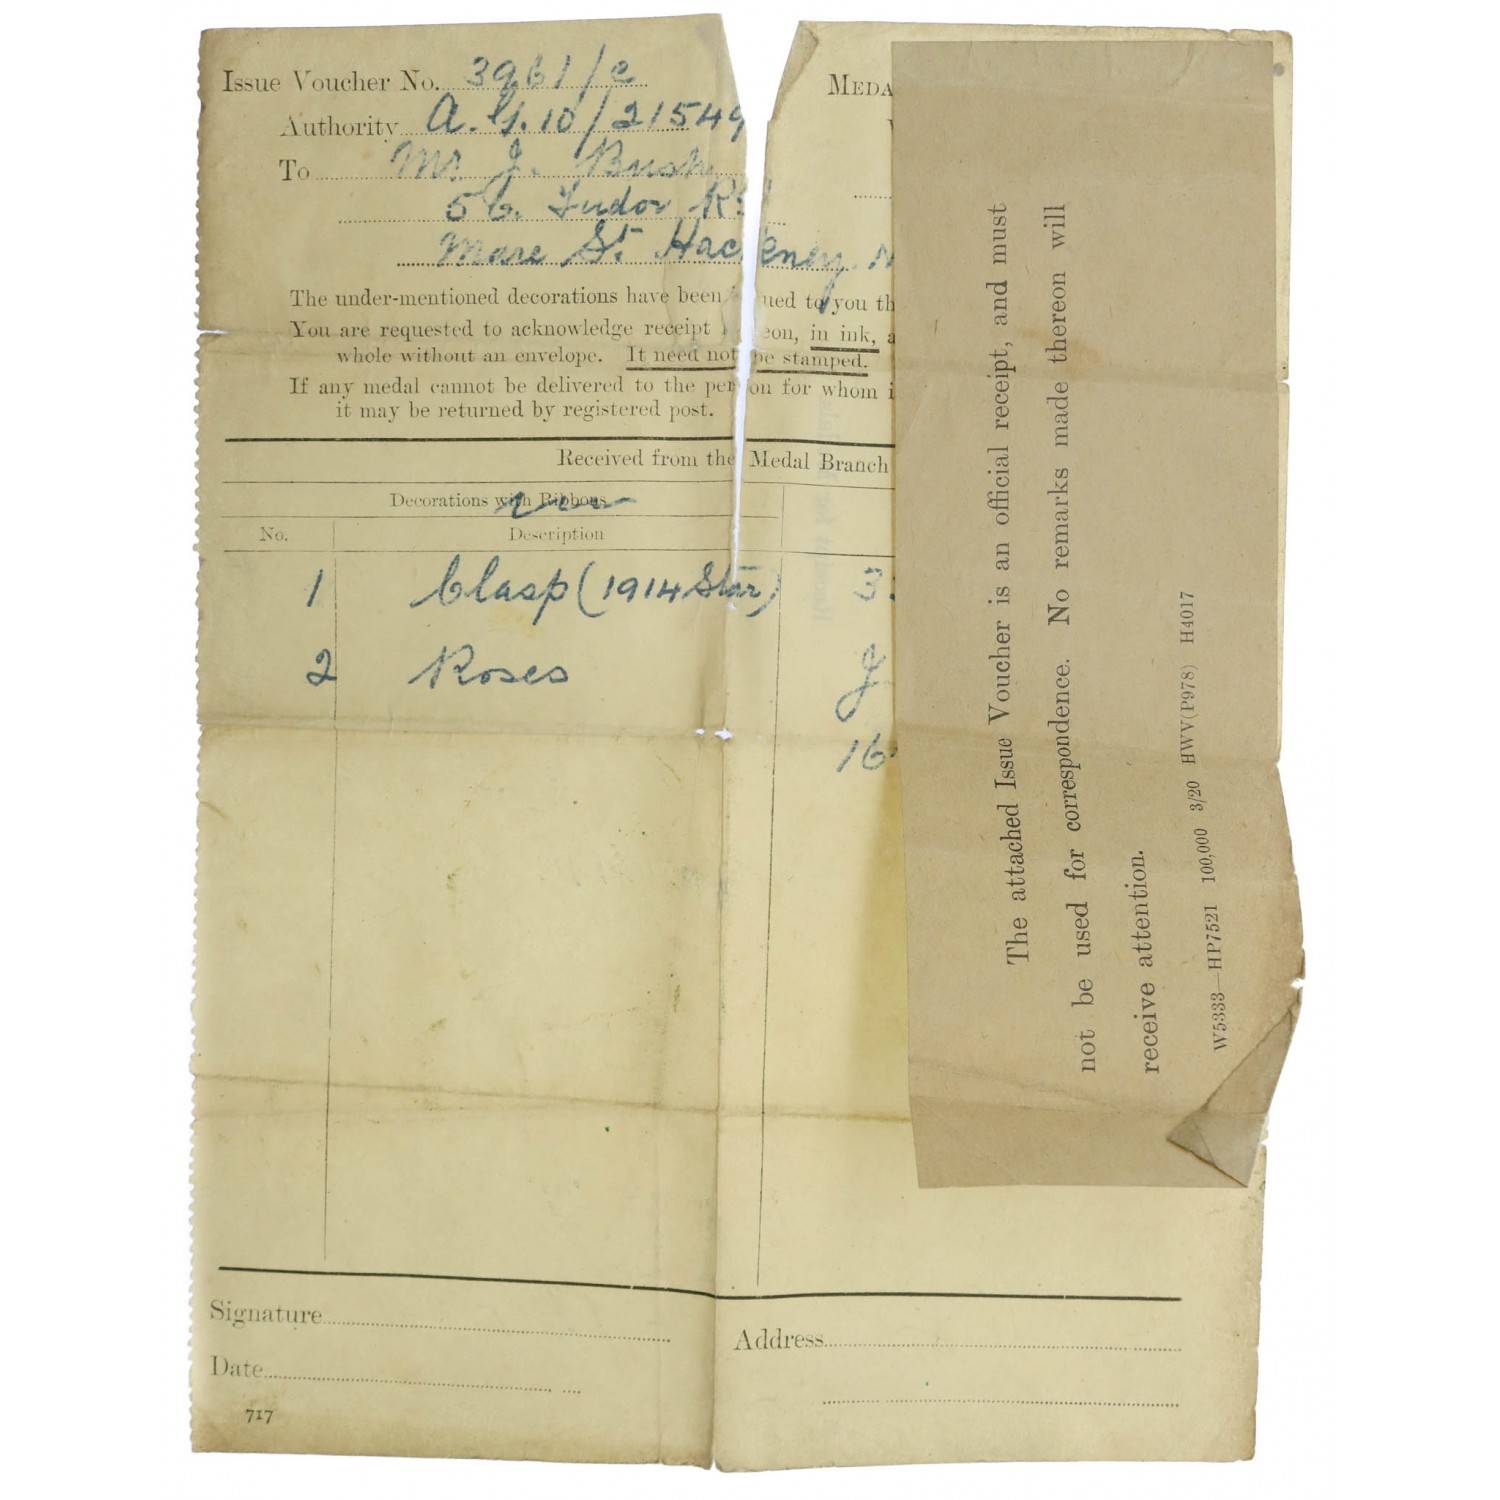 Issue Voucher No. 3961/c
Authority A.G.10/21549
To Mr J. Bush
56. Tudor Rd
Mare St. Hackney N
MEDA
The under-mentioned decorations have been ued to you th
You are requested to acknowledge receipt eon, in ink, a
whole without an envelope. It need not be stamped.
If any medal cannot be delivered to the person for whom i
it may be returned by registered post.
Received from the Medal Branch
Decorations with Ribbons
No. Description
1 Clasp (1914 Star) 3
2 Roses J
16
Signature
Date
717
Address
The attached Issue Voucher is an official receipt, and must
not be used for correspondence. No remarks made thereon will
receive attention.
W5333—HP7521 100,000 3/20 HWV(P978) H4017